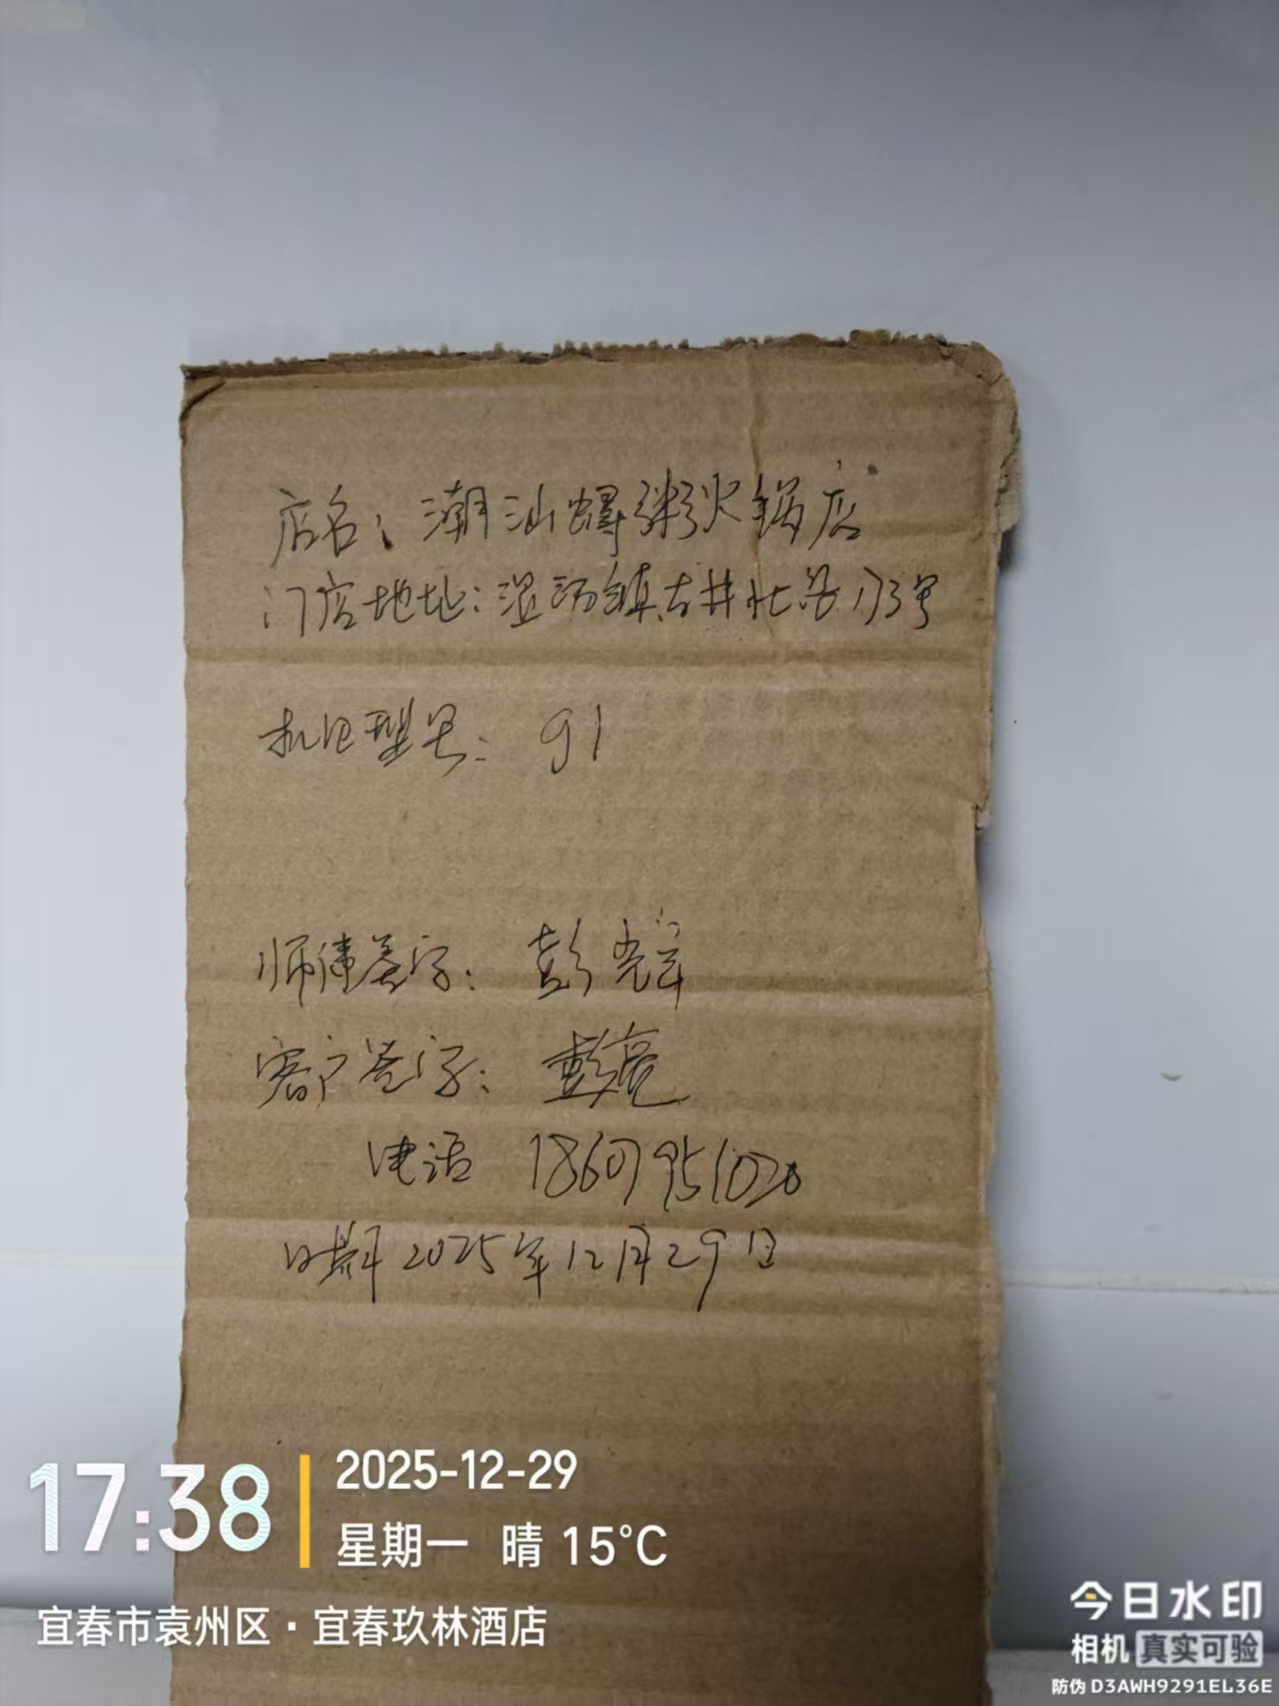 店名：潮汕蟳粥火锅店
门店地址：温汤镇古井北路173号
机旧型号：g1
师傅签字：彭光
客户签字：彭亮
电话 18607951020
日期 2025年12月29日
17:38
2025-12-29
星期一 晴 15°C
宜春市袁州区·宜春玖林酒店
今日水印
相机 真实可验
防伪 D3AWH9291EL36E